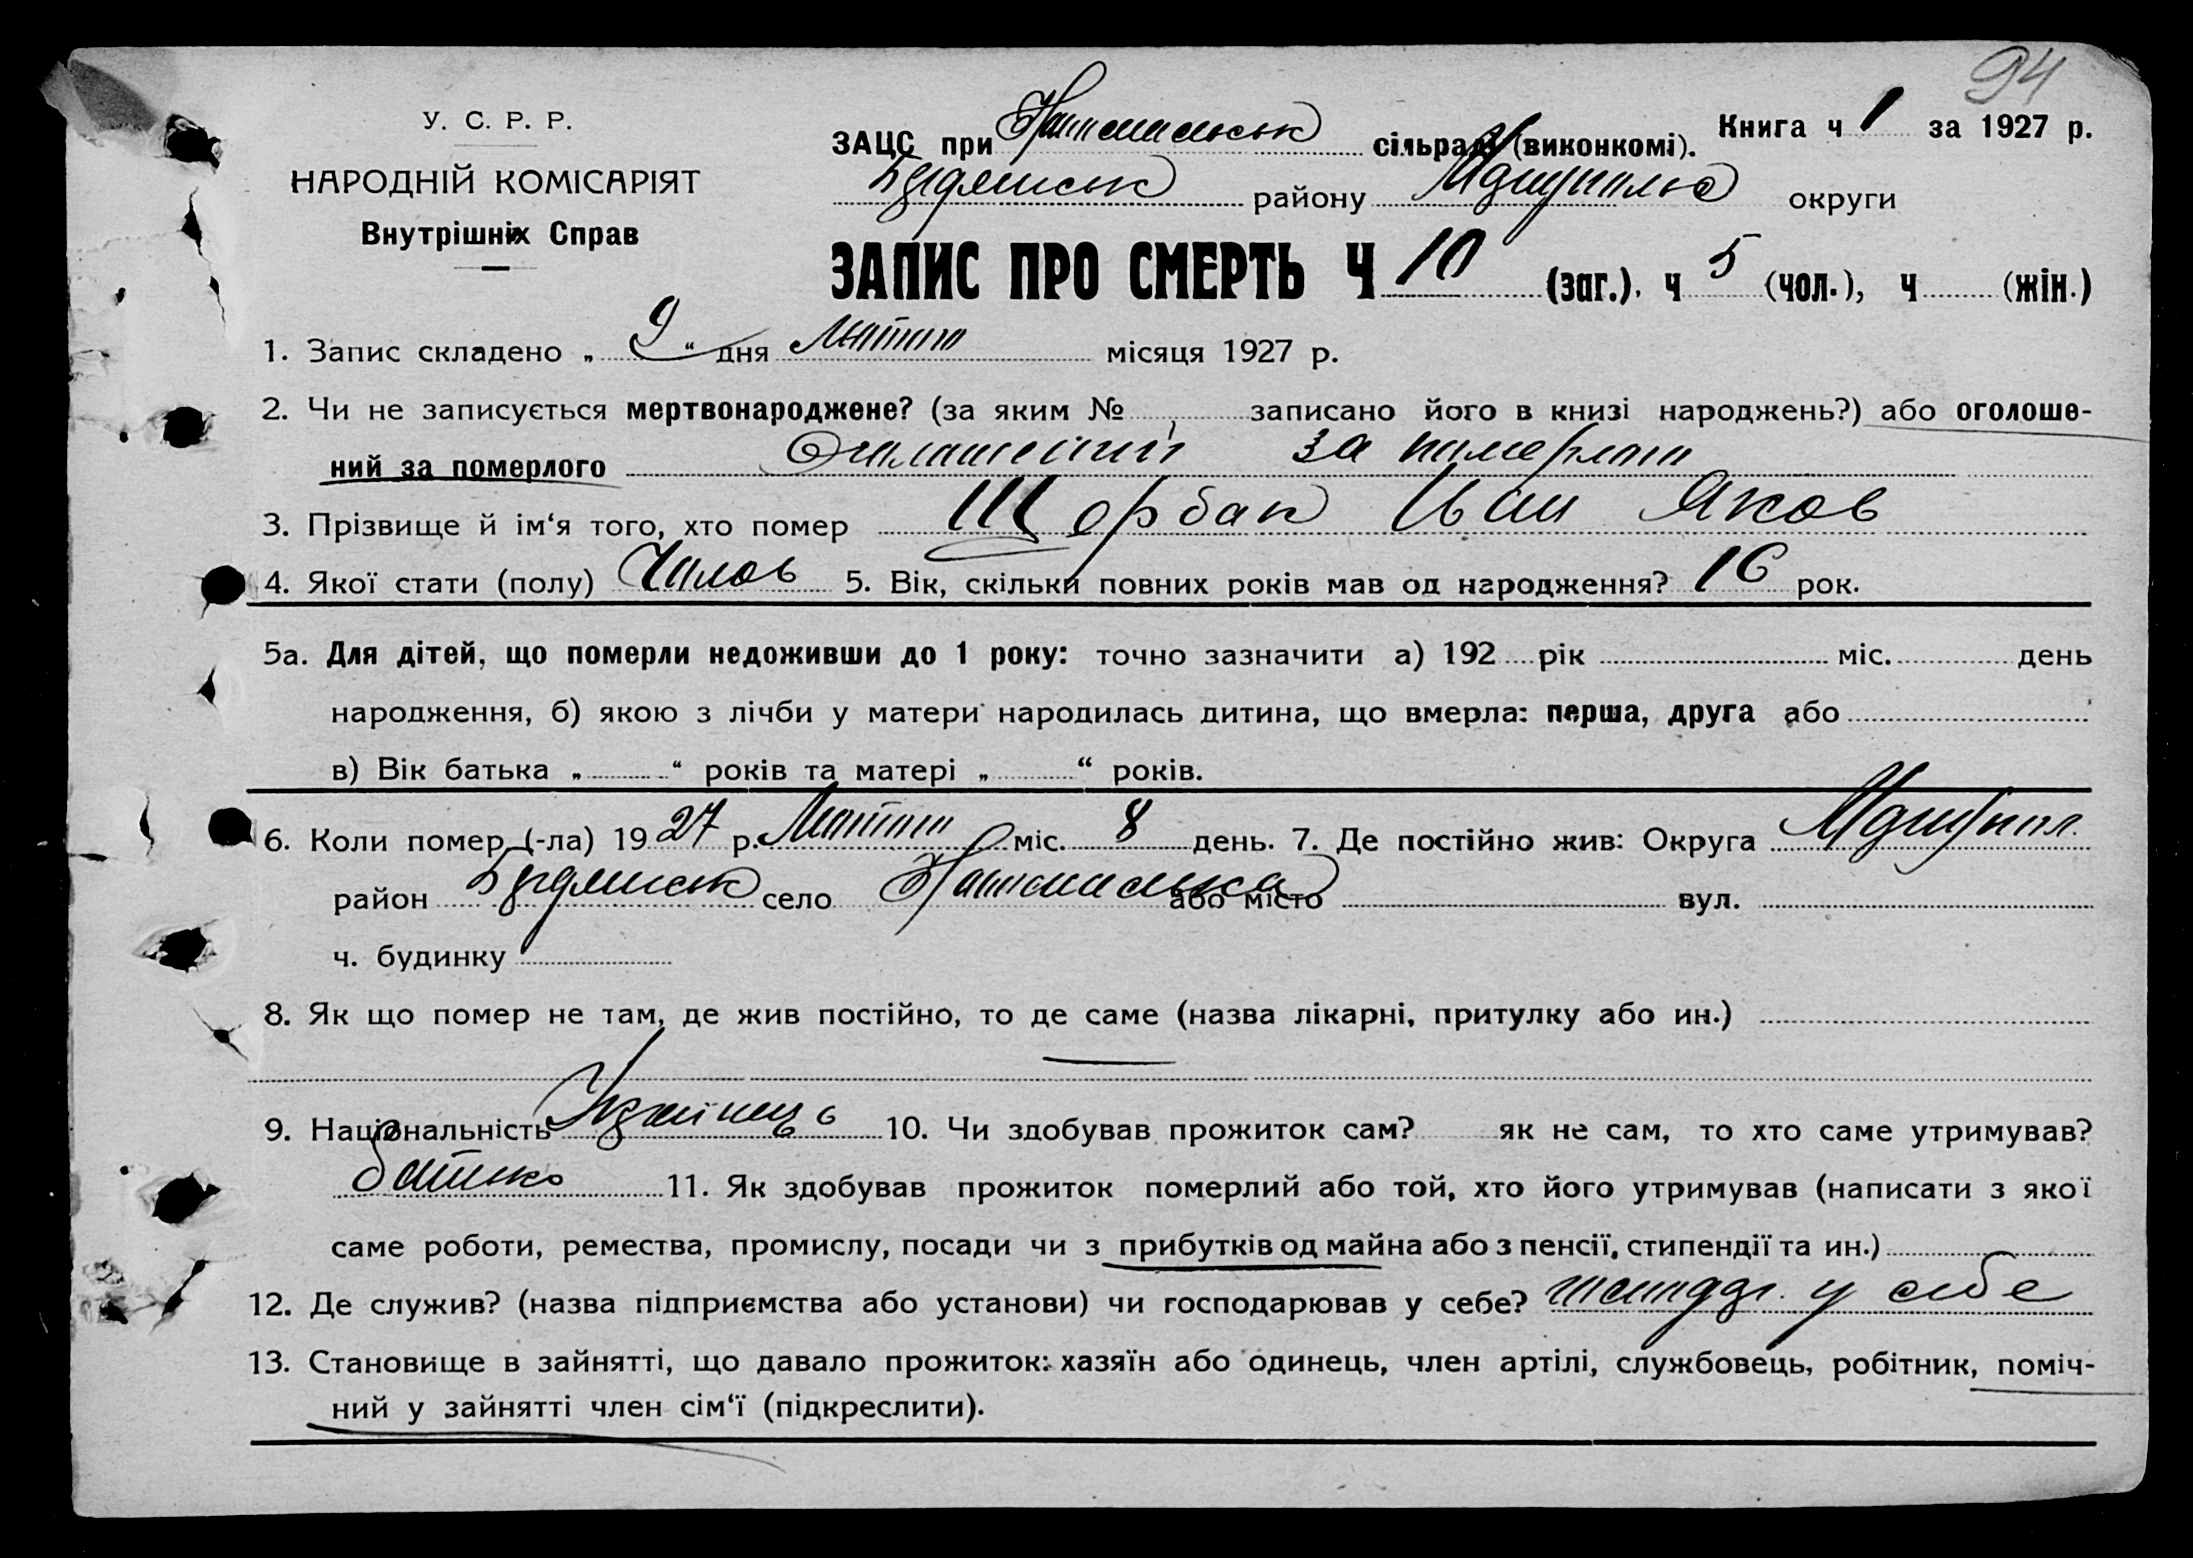 94
У. С. Р. Р.
НАРОДНІЙ КОМІСАРІЯТ
Внутрішніх Справ
ЗАЦС при сільраді (виконкомі). Книга ч 1 за 1927 р.
району округи
ЗАПИС ПРО СМЕРТЬ Ч 10 (заг.), ч 5 (чол.), ч (жін.)
1. Запис складено „ 9 “ дня Лютого місяця 1927 р.
2. Чи не записується мертвонароджене? (за яким № записано його в книзі народжень?) або оголоше-
ний за померлого Оголошений за померлого
3. Прізвище й ім‘я того, хто помер Щербак Иван Яков
4. Якої стати (полу) Чолов 5. Вік, скільки повних років мав од народження? 16 рок.
5а. Для дітей, що померли недоживши до 1 року: точно зазначити а) 192 рік міс. день
народження, б) якою з лічби у матери народилась дитина, що вмерла: перша, друга або
в) Вік батька „ “ років та матері „ “ років.
6. Коли помер (-ла) 1927 р. Лютого міс. 8 день. 7. Де постійно жив: Округа
район село або місто вул.
ч. будинку
8. Як що помер не там, де жив постійно, то де саме (назва лікарні, притулку або ин.)
9. Національність Українець 10. Чи здобував прожиток сам? як не сам, то хто саме утримував?
батько 11. Як здобував прожиток померлий або той, хто його утримував (написати з якої
саме роботи, ремества, промислу, посади чи з прибутків од майна або з пенсії, стипендії та ин.)
12. Де служив? (назва підприємства або установи) чи господарював у себе? у себе
13. Становище в зайнятті, що давало прожиток: хазяїн або одинець, член артілі, службовець, робітник, поміч-
ний у зайнятті член сім‘ї (підкреслити).